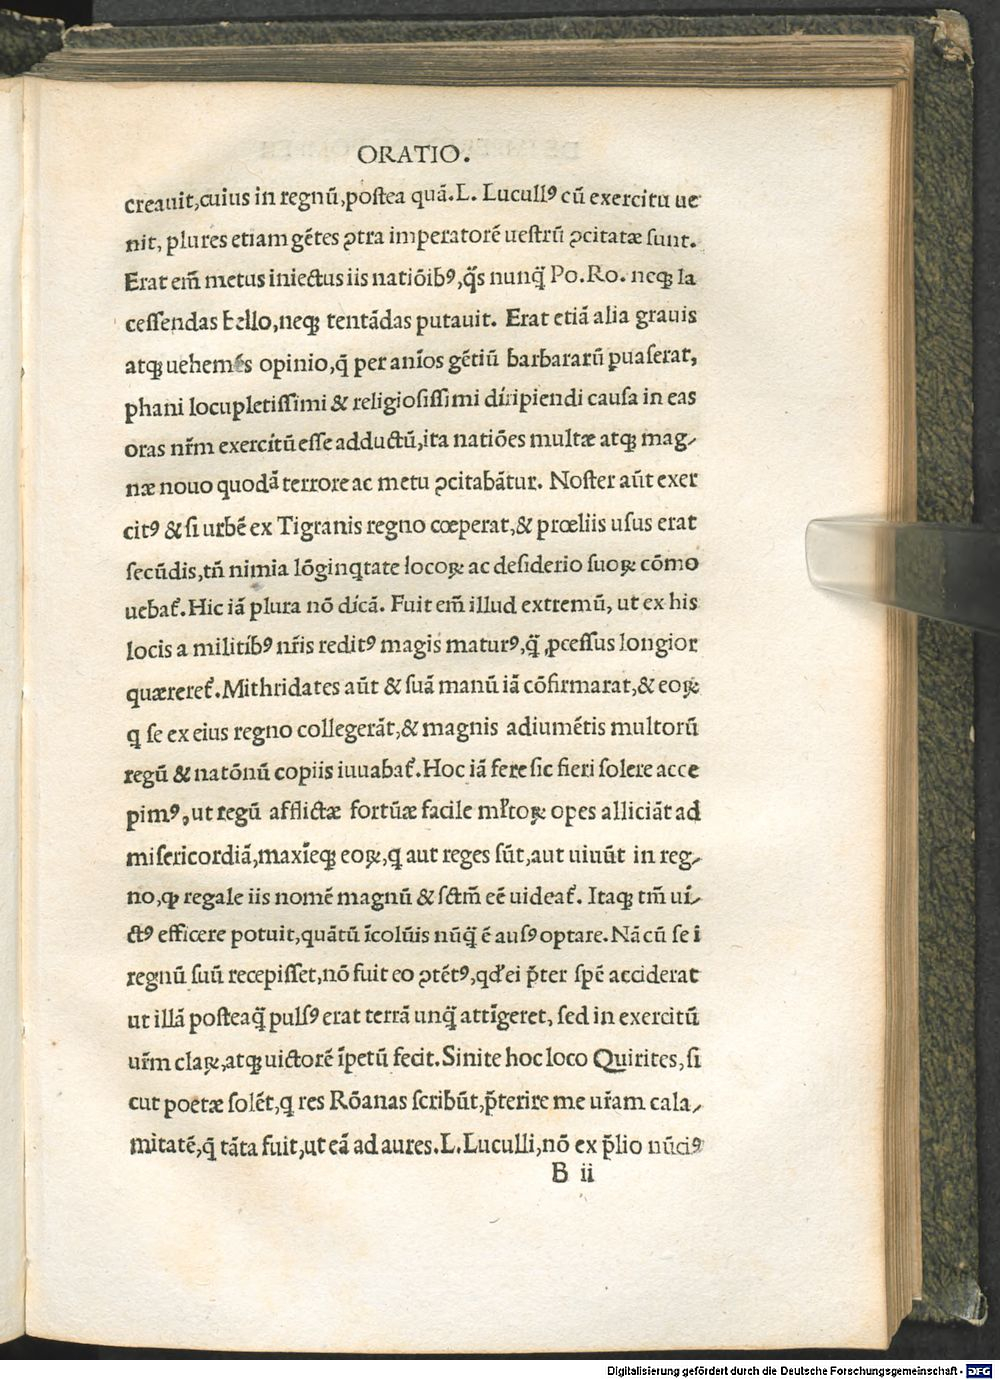 ORATIO.
creauit,cuius in regnū,postea quā.L. Lucullꝰ cū exercitu ue
nit, plures etiam gētes ꝯtra imperatorē uestrū ꝯcitatæ sunt.
Erat em̄ metus iniectus iis natiōibꝰ,q̄s nunq̄ Po.Ro. neqꝫ la
cessendas bello,neqꝫ tentādas putauit. Erat etiā alia grauis
atqꝫ uehemēs opinio,q̄ per anīos gētiū barbararū ꝑuaserat,
phani locupletissimi & religiosissimi diripiendi causa in eas
oras nr̄m exercitū esse adductū,ita natiōes multæ atqꝫ mag-
næ nouo quodā terrore ac metu ꝯcitabātur. Noster aūt exer
citꝰ & si urbē ex Tigranis regno cœperat,& prœliis usus erat
secūdis,tn̄ nimia lōginqtate locoꝝ ac desiderio suoꝝ cōmo
uebat᷑. Hic iā plura nō dicā. Fuit em̄ illud extremū, ut ex his
locis a militibꝰ nr̄is reditꝰ magis maturꝰ,q̄ ꝓcessus longior
quæreret᷑. Mithridates aūt & suā manū iā cōfirmarat,& eoꝝ
q se ex eius regno collegerāt,& magnis adiumētis multorū
regū & natōnū copiis iuuabat᷑. Hoc iā fere sic fieri solere acce
pimꝰ,ut regū afflictæ fortūæ facile ml̄toꝝ opes alliciāt ad
misericordiā,maxīeqꝫ eoꝝ,q aut reges sūt,aut uiuūt in reg-
no,ꝙ regale iis nomē magnū & sctm̄ eē uideat᷑. Itaqꝫ tm̄ ui-
ctꝰ efficere potuit,quātū īcolūis nūq̄ ē ausꝰ optare. Nā cū se ī
regnū suū recepisset,nō fuit eo ꝯtētꝰ,qd' ei p̄ter spē acciderat
ut illā posteaq̄ pulsꝰ erat terrā unq̄ attīgeret, sed in exercitū
ur̄m claꝝ,atqꝫ uictorē īpetū fecit. Sinite hoc loco Quirites, si
cut poetæ solēt,q res Rōanas scribūt,p̄terire me ur̄am cala-
mitatē,q̄ tāta fuit,ut eā ad aures.L.Luculli,nō ex p̄lio nūciꝰ
B ii
Digitalisierung gefördert durch die Deutsche Forschungsgemeinschaft - DFG